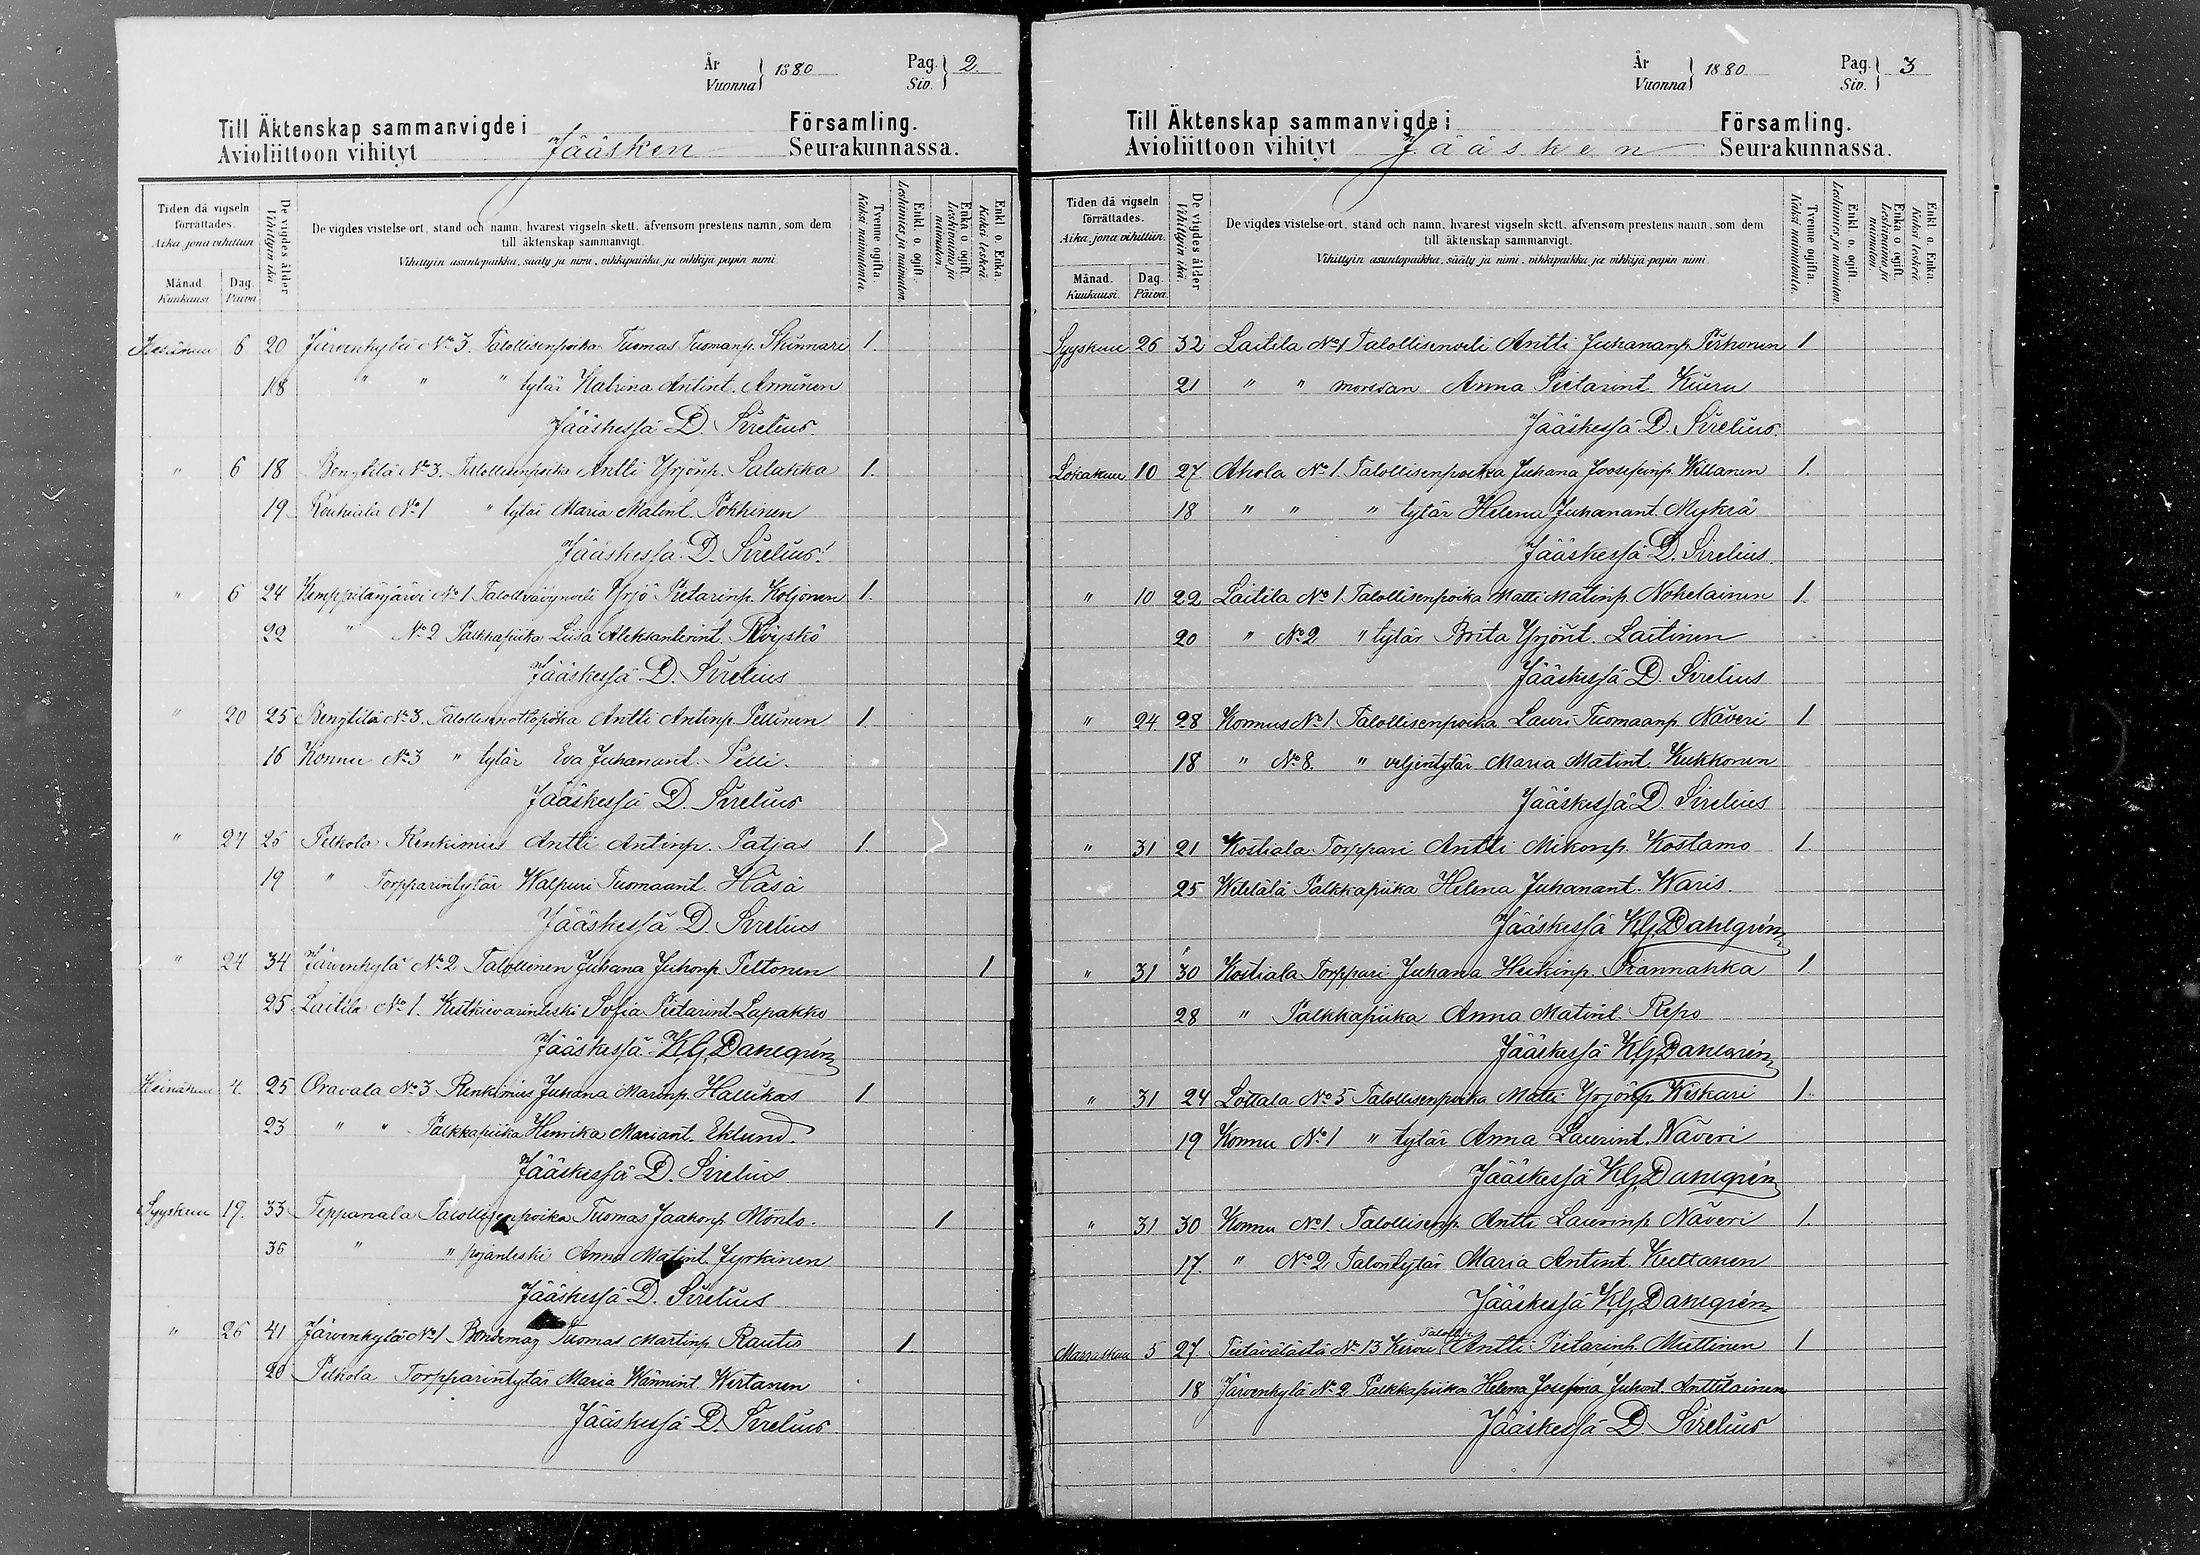 År
Vuonna } 1880 Pag.
Siv. } 2.
Till Äktenskap sammanvigde i Församling.
Avioliittoon vihityt Jääsken Seurakunnassa.
Tiden då vigseln förrättades.
Aika, jona vihittiin
Månad. Kuukausi
Dag. Päivä
De vigdes ålder
Vihittyin ikä
De vigdes vistelse ort, stånd och namn, hvarest vigseln skett, äfvensom prestens namn, som dem
till äktenskap sammanvigt.
Vihittyin asuntopaikka, sääty ja nimi, vihkipaikka ja vihkijä papin nimi
Tvenne ogifta.
Kaksi naimatonta.
Enkl. o. ogift.
Leskimies ja naimaton.
Enka o. ogift.
Leskivaimo ja naimaton.
Enkl. o. Enka.
Kaksi leskeä.
Kesäkuu 6 20 Järvenkylä No 3. Talollisenpoika Tuomas Tuomanp. Skinnari 1.
18 " " " tytär Katrina Antint. Arminen
Jääskessä D. Sirelius.
" 6 18 Bengtilä No 3. Talollisenpoika Antti Yrjönp. Salakka 1.
19 No 1 " tytär Maria Matint. Pökkinen
Jääskessä D. Sirelius.
" 6 24 Kemppilänjärvi No 1 Yrjö Pietarinp. Koljonen 1.
22 " No 2 Palkkapiika Liisa Aleksanterint.
Jääskessä D. Sirelius
" 20 25 Bengtilä No 3. Antti Antinp. Pellinen 1.
16 Konnu No 3 " tytär Eva Juhanant. Pelli.
Jääskessä D. Sirelius
" 24 26 Pelkola Renkimies Antti Antinp. Patjas 1.
19 " Torpparintytär Walpuri Tuomaant. Häsä
Jääskessä D. Sirelius
" 24 34 Järvenkylä No 2 Talollinen Juhana Juhonp. Peltonen 1
25 Laitila No 1. Kestkievarinleski Sofia Pietarint. Lapakko
Jääskessä K.G. Dahlgrén
Heinäkuu 4. 25 Oravala No 3 Renkimies Juhana Marinp. Hallikas 1
23 " " Palkkapiika Henrika Mariant. Eklund.
Jääskessä D. Sirelius.
Syyskuu 19. 33 Teppanala Talollisenpoika Tuomas Jaakonp. Mönto. 1
36 " " pojanleski Anna Matint. Jyrkinen
Jääskessä D. Sirelius
" 26 41 Järvenkylä No 1 Tuomas Martinp. Rautio 1.
20 Pelkola Torpparintytär Maria Wertanen
Jääskessä D. Sirelius.
År
Vuonna } 1880 Pag.
Siv. } 3
Till Äktenskap sammanvigde i Församling.
Avioliittoon vihityt Jääsken Seurakunnassa.
Tiden då vigseln förrättades.
Aika, jona vihittiin.
Månad. Kuukausi.
Dag. Päivä.
De vigdes ålder
Vihittyin ikä.
De vigdes vistelse ort, stånd och namn, hvarest vigseln skett, äfvensom prestens namn, som dem
till äktenskap sammanvigt.
Vihittyin asuntopaikka, sääty ja nimi, vihkipaikka ja vihkijä papin nimi
Tvenne ogifta.
Kaksi naimatonta.
Enkl. o. ogift.
Leskimies ja naimaton.
Enka o. ogift.
Leskivaimo ja naimaton.
Enkl. o. Enka.
Kaksi leskeä.
Syyskuu 26 32 Laitila No 1 Talollisenveli Antti Juhananp. Pirhonen 1
21 " " morsian Anna Pietarint. Kueru
Jääskessä D. Sirelius.
Lokakuu 10 27. Ahola No 1. Talollisenpoika Juhana Joosepinp. Killanen 1.
18 " " " tytär Helena Juhanant. Mykrä
Jääskessä D. Sirelius.
" 10 22 Laitila No 1. Talollisenpoika Matti Matinp. Nohelainen 1.
20 " No 2 " tytär Brita Yrjönt. Laitinen
Jääskessä D. Sirelius
" 24 28 Konnus No 1. Talollisenpoika Lauri Tuomaanp. Näveri 1
18 " No 8. " veljentytär Maria Matint. Kukkonen
Jääskessä D. Sirelius
" 31 21 Kostiala Torppari Antti Mikonp. Kostamo 1.
25 Wetelälä Palkkapiika Helena Juhanant. Waris.
Jääskessä K.G. Dahlgrén
" 31 30 Kostiala Torppari Juhana Heikinp. 1.
28 " Palkkapiika Anna Matint. Repo
Jääskessä K.G. Dahlgrén
" 31 24 Lottala No 5 Talollisenpoika Matti Yrjönp. Wiskari 1.
19 Konnu No 1 " tytär Anna Laurint. Näveri
Jääskessä K.G. Dahlgrén
" 31 30 Konnu No 1. Talollisenp. Antti Laurinp. Näveri 1.
17. " No 2 Talontytär Maria Antint. Kultanen
Jääskessä K.G. Dahlgrén
Marraskuu 5 27. No 13 Kirvu Antti Pietarinp. Miettinen 1
18 Järvenkylä No 2 Palkkapiika Helena Josefina Juhont. Anttilainen
Jääskessä D. Sirelius